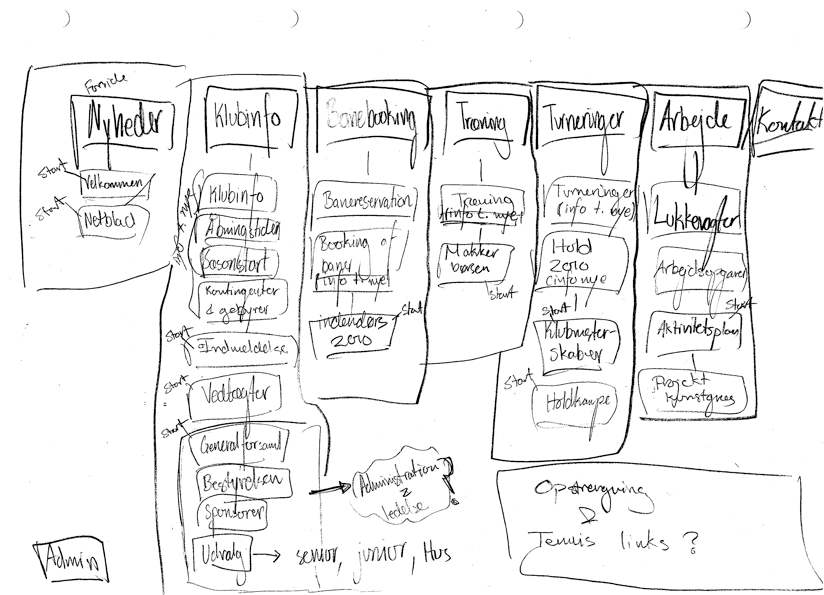 Forside
Nyheder
Start
Velkommen
Start
Netblad
Klubinfo
info t. nye
Klubinfo
Åbningstider
Sæsonstart
Kontingenter
& gebyrer
Start
Indmeldelse
Start
Vedtægter
Start
Generalforsaml
Bestyrelsen
Sponsorer
Udvalg
senior, junior, Hus
Administration
&
ledelse
?
Banebooking
Banereservation
Booking af
baner
(info t. nye)
Start
indendørs
2010
Træning
Træning
(info t. nye)
Makker
børsen
Start
Turneringer
Turneringer
(info t. nye)
Hold
2010
(info nye)
Start
Klubmester-
skaber
Start
Holdkampe
Arbejde
Lukkevagter
Arbejdsopgaver
Start
Aktivitetsplan
Projekt
kunstgræs
Kontakt
Opstregning
&
Tennis links ?
Admin